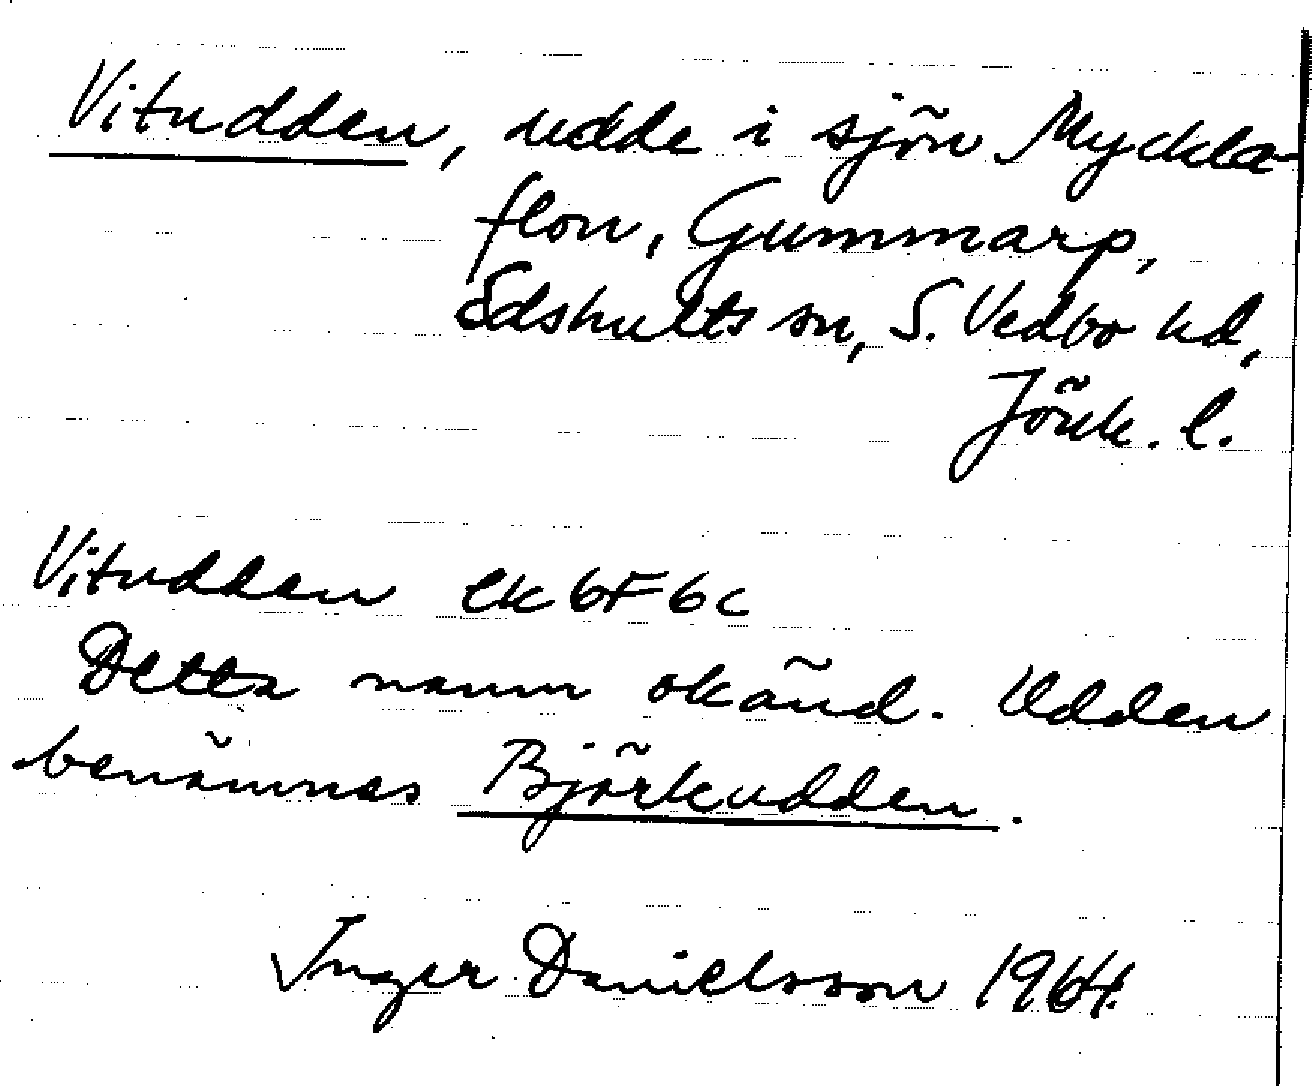 Vitudden, udde i sjön Myckla-
flon, Gummarp,
Edshults sn, S. Vedbo hd,
Jönk. l.
Vitudden ek 6F6c
Detta namn okänd. Udden
benämnes Björkudden.
Inger Danielsson 1964.